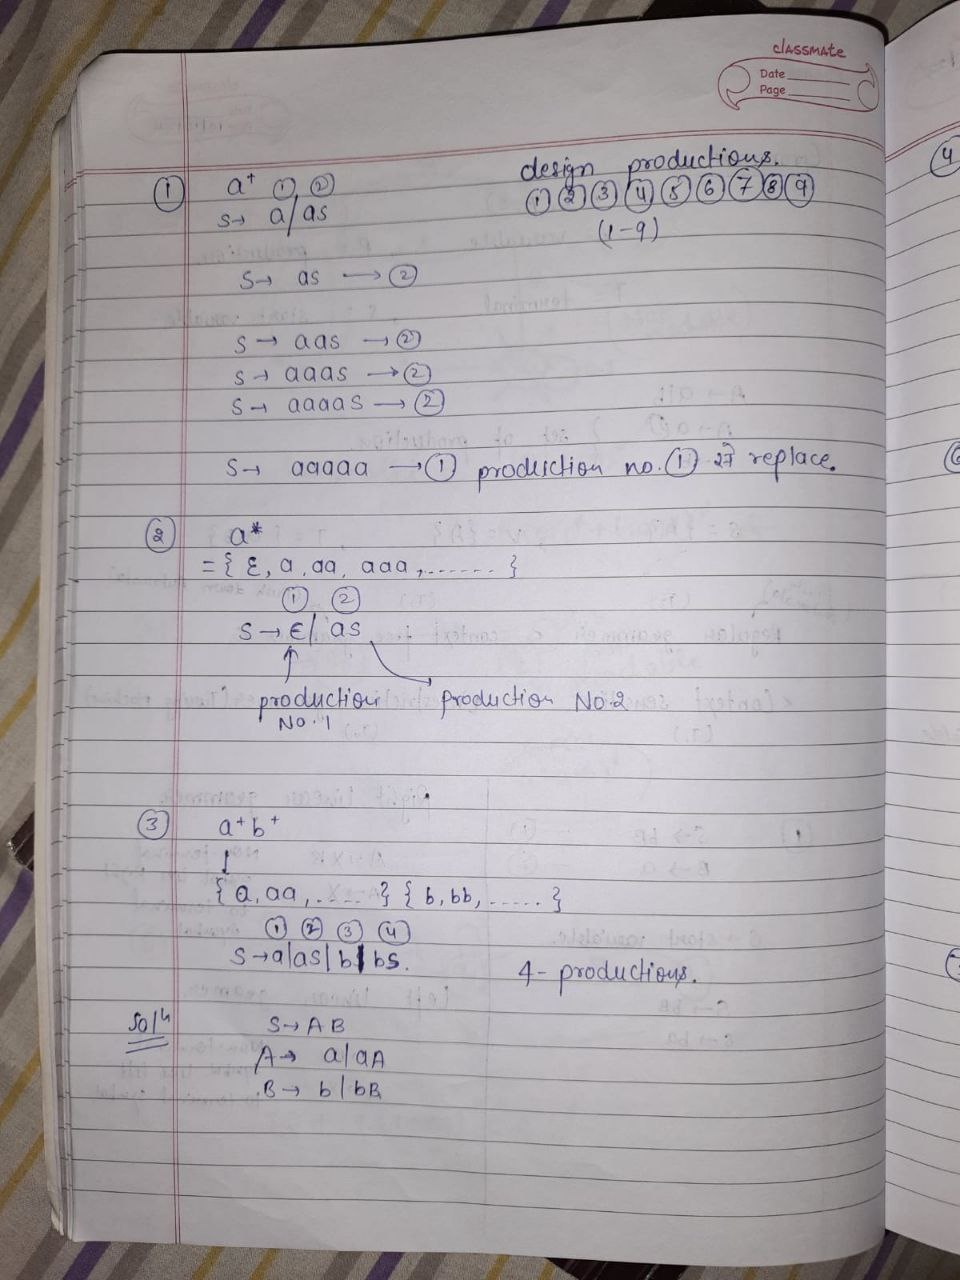 classmate
Date
Page
design productions.
① ② ③ ④ ⑤ ⑥ ⑦ ⑧ ⑨
(1-9)
① a⁺ ① ②
S→ a/as
S→ as → ②
S → aas → ②
S → aaas → ②
S → aaaas → ②
S→ aaaaa → ① production no. ① replace.
② a*
= { ε, a, aa, aaa, ...... }
① ②
S → ε/ as
production No. 1
production No. 2
③ a⁺b⁺
↓
{ a, aa, ...... } { b, bb, ...... }
① ② ③ ④
S→a|as|b|bs.
4- productions.
Solⁿ S→ AB
A→ a/aA
B→ b/bB
④